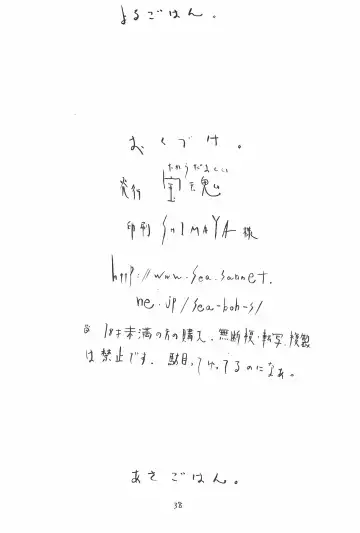 よるごはん。
おくづけ。
たからだましい
発行 宝魂
印刷 SHIMAYA様
http://www.sea.sannet.
ne.jp/sea-boh-s/
18才未満の方の購入、無断
は禁止です。駄目っていってるのになぁ。
あさごはん。
38